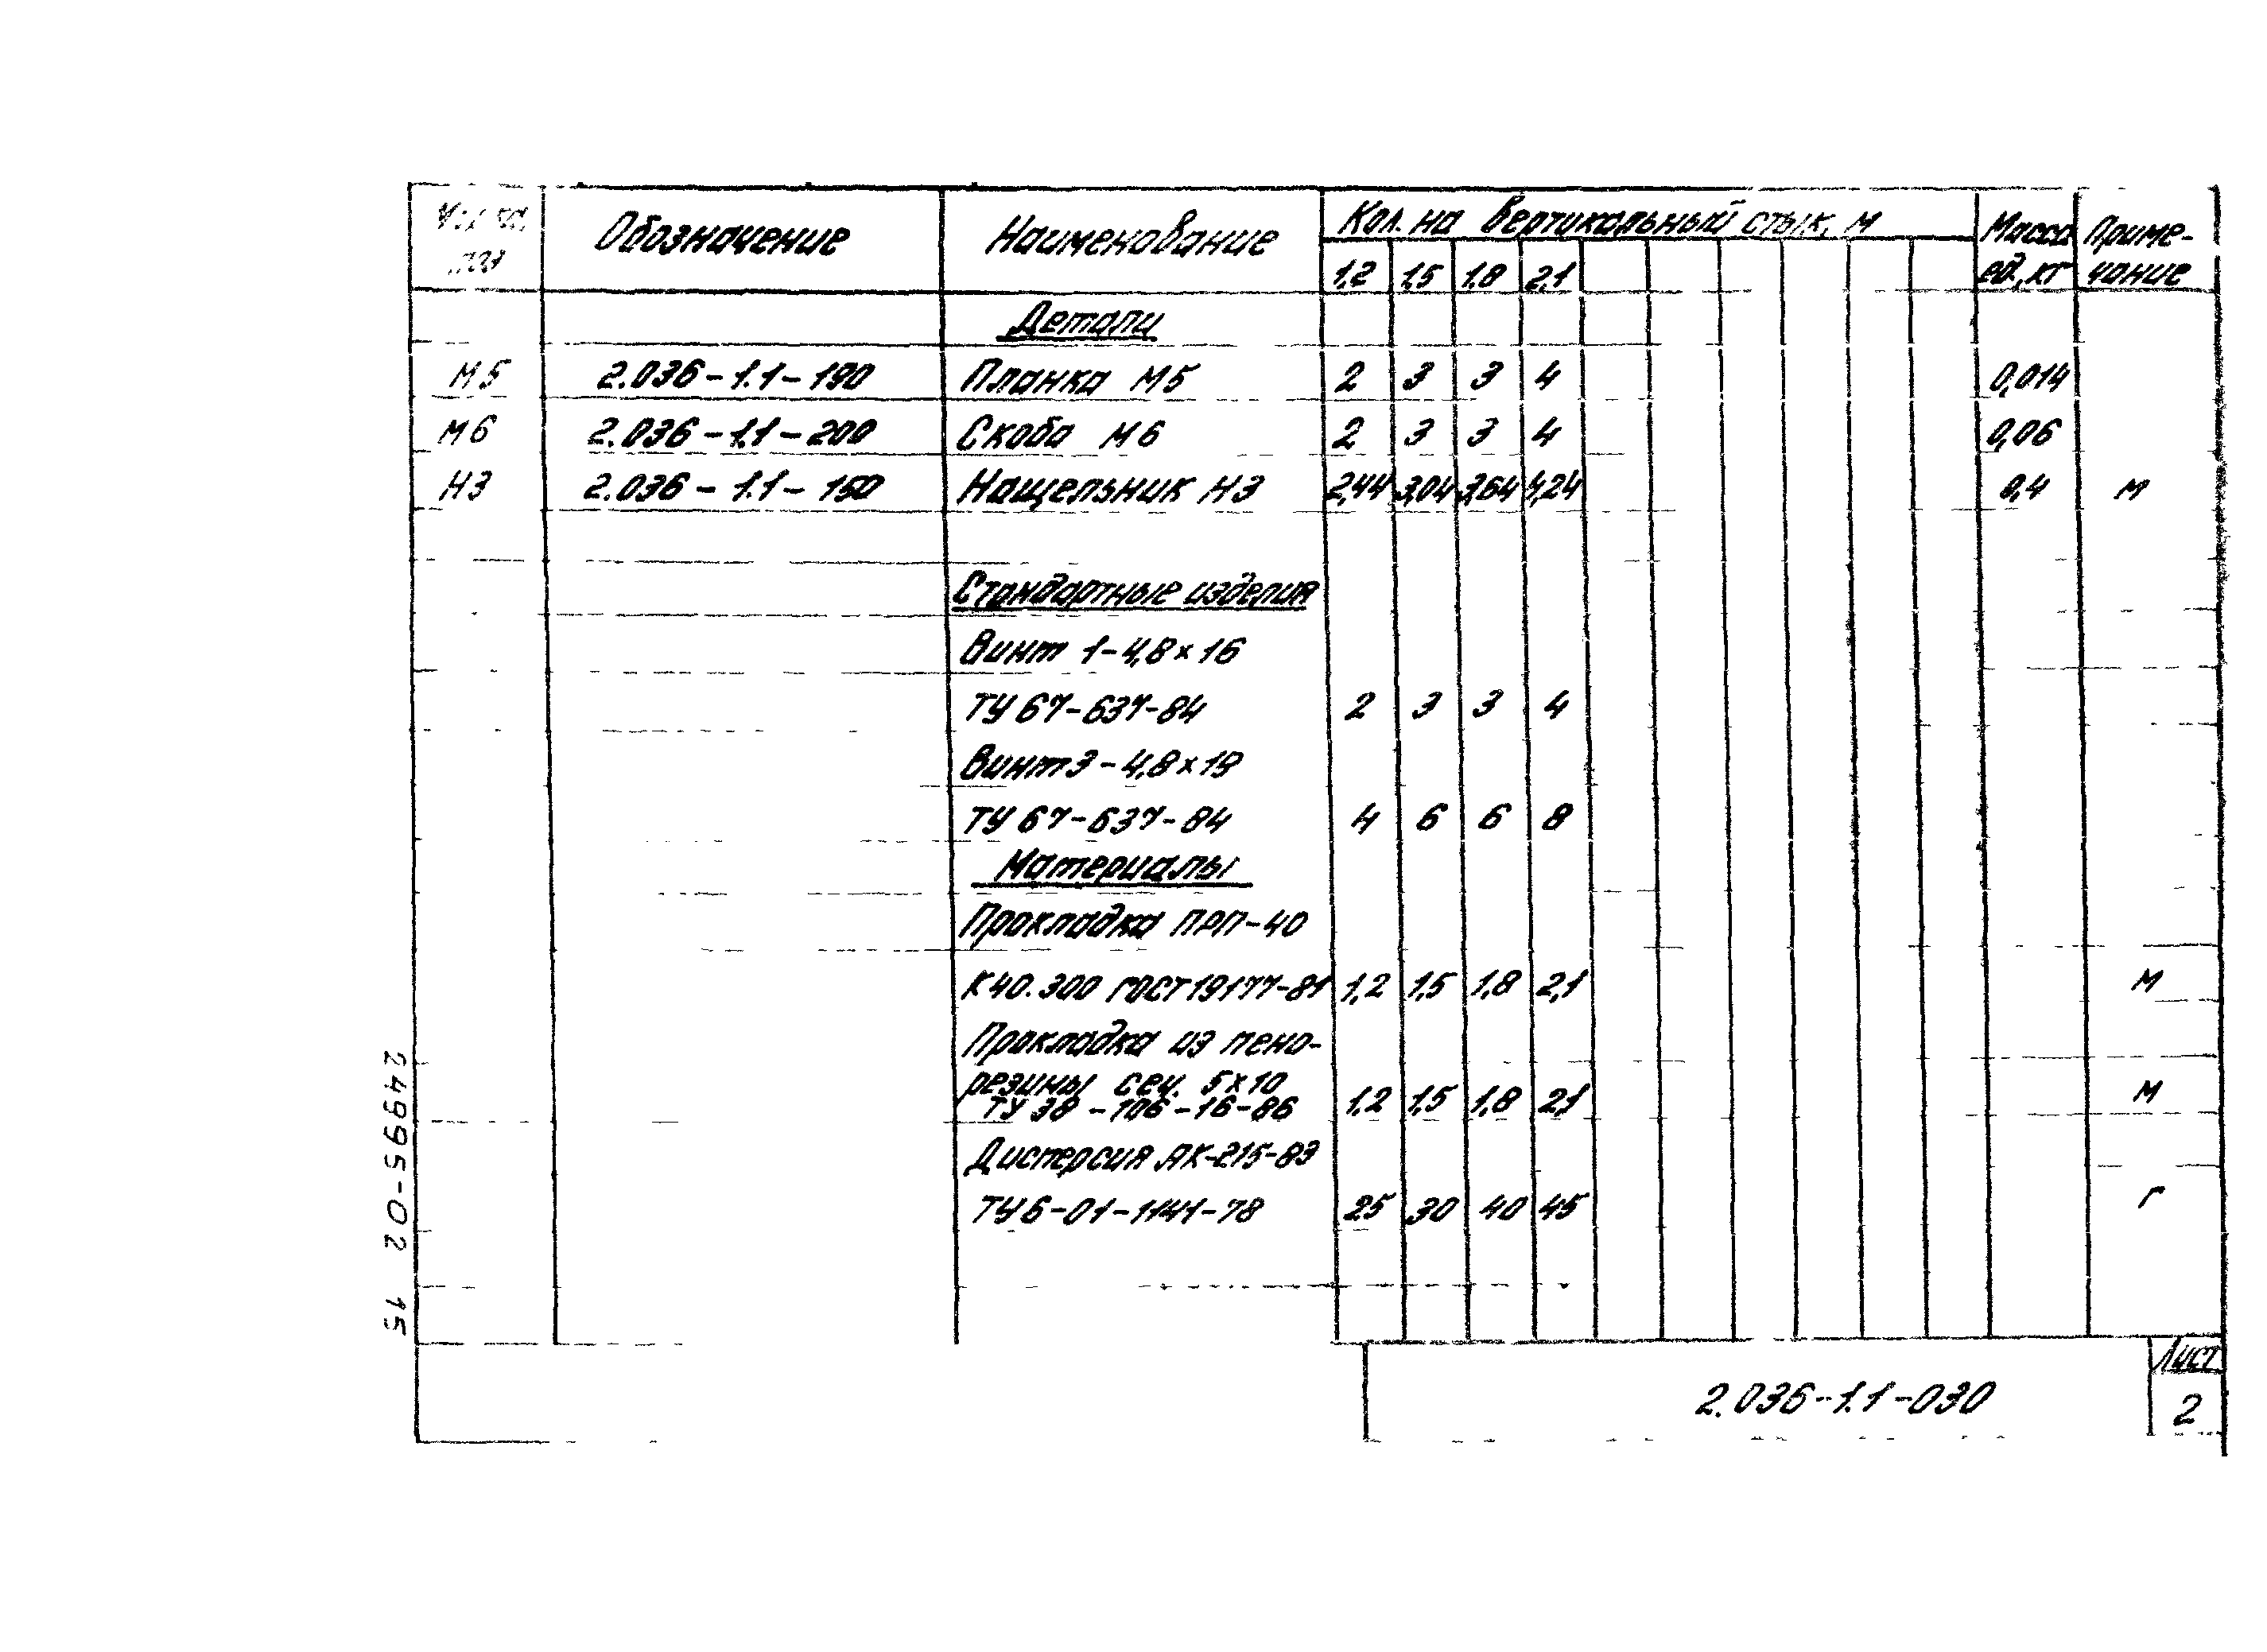 Марка, поз
Обозначение
Наименование
Кол. на вертикальный стык, м
1,2 1,5 1,8 2,1
Масса ед., кг
Приме-
чание
Детали
М5 2.036-1.1-190 Планка М5 2 3 3 4 0,014
М6 2.036-1.1-200 Скоба М6 2 3 3 4 0,06
Н3 2.036-1.1-150 Нащельник Н3 2,44 3,04 3,64 4,24 0,4 м
Стандартные изделия
Винт 1-4,8×16
ТУ 67-637-84 2 3 3 4
Винт 3-4,8×19
ТУ 67-637-84 4 6 6 8
Материалы
Прокладка ПРП-40
К40.300 ГОСТ 19177-81 1,2 1,5 1,8 2,1 м
Прокладка из пено-
резины сеч. 5×10
ТУ 38-106-16-86 1,2 1,5 1,8 2,1 м
Дисперсия АК-215-83
ТУ6-01-1141-78 25 30 40 45 г
24995-02 15
2.036-1.1-030
Лист
2